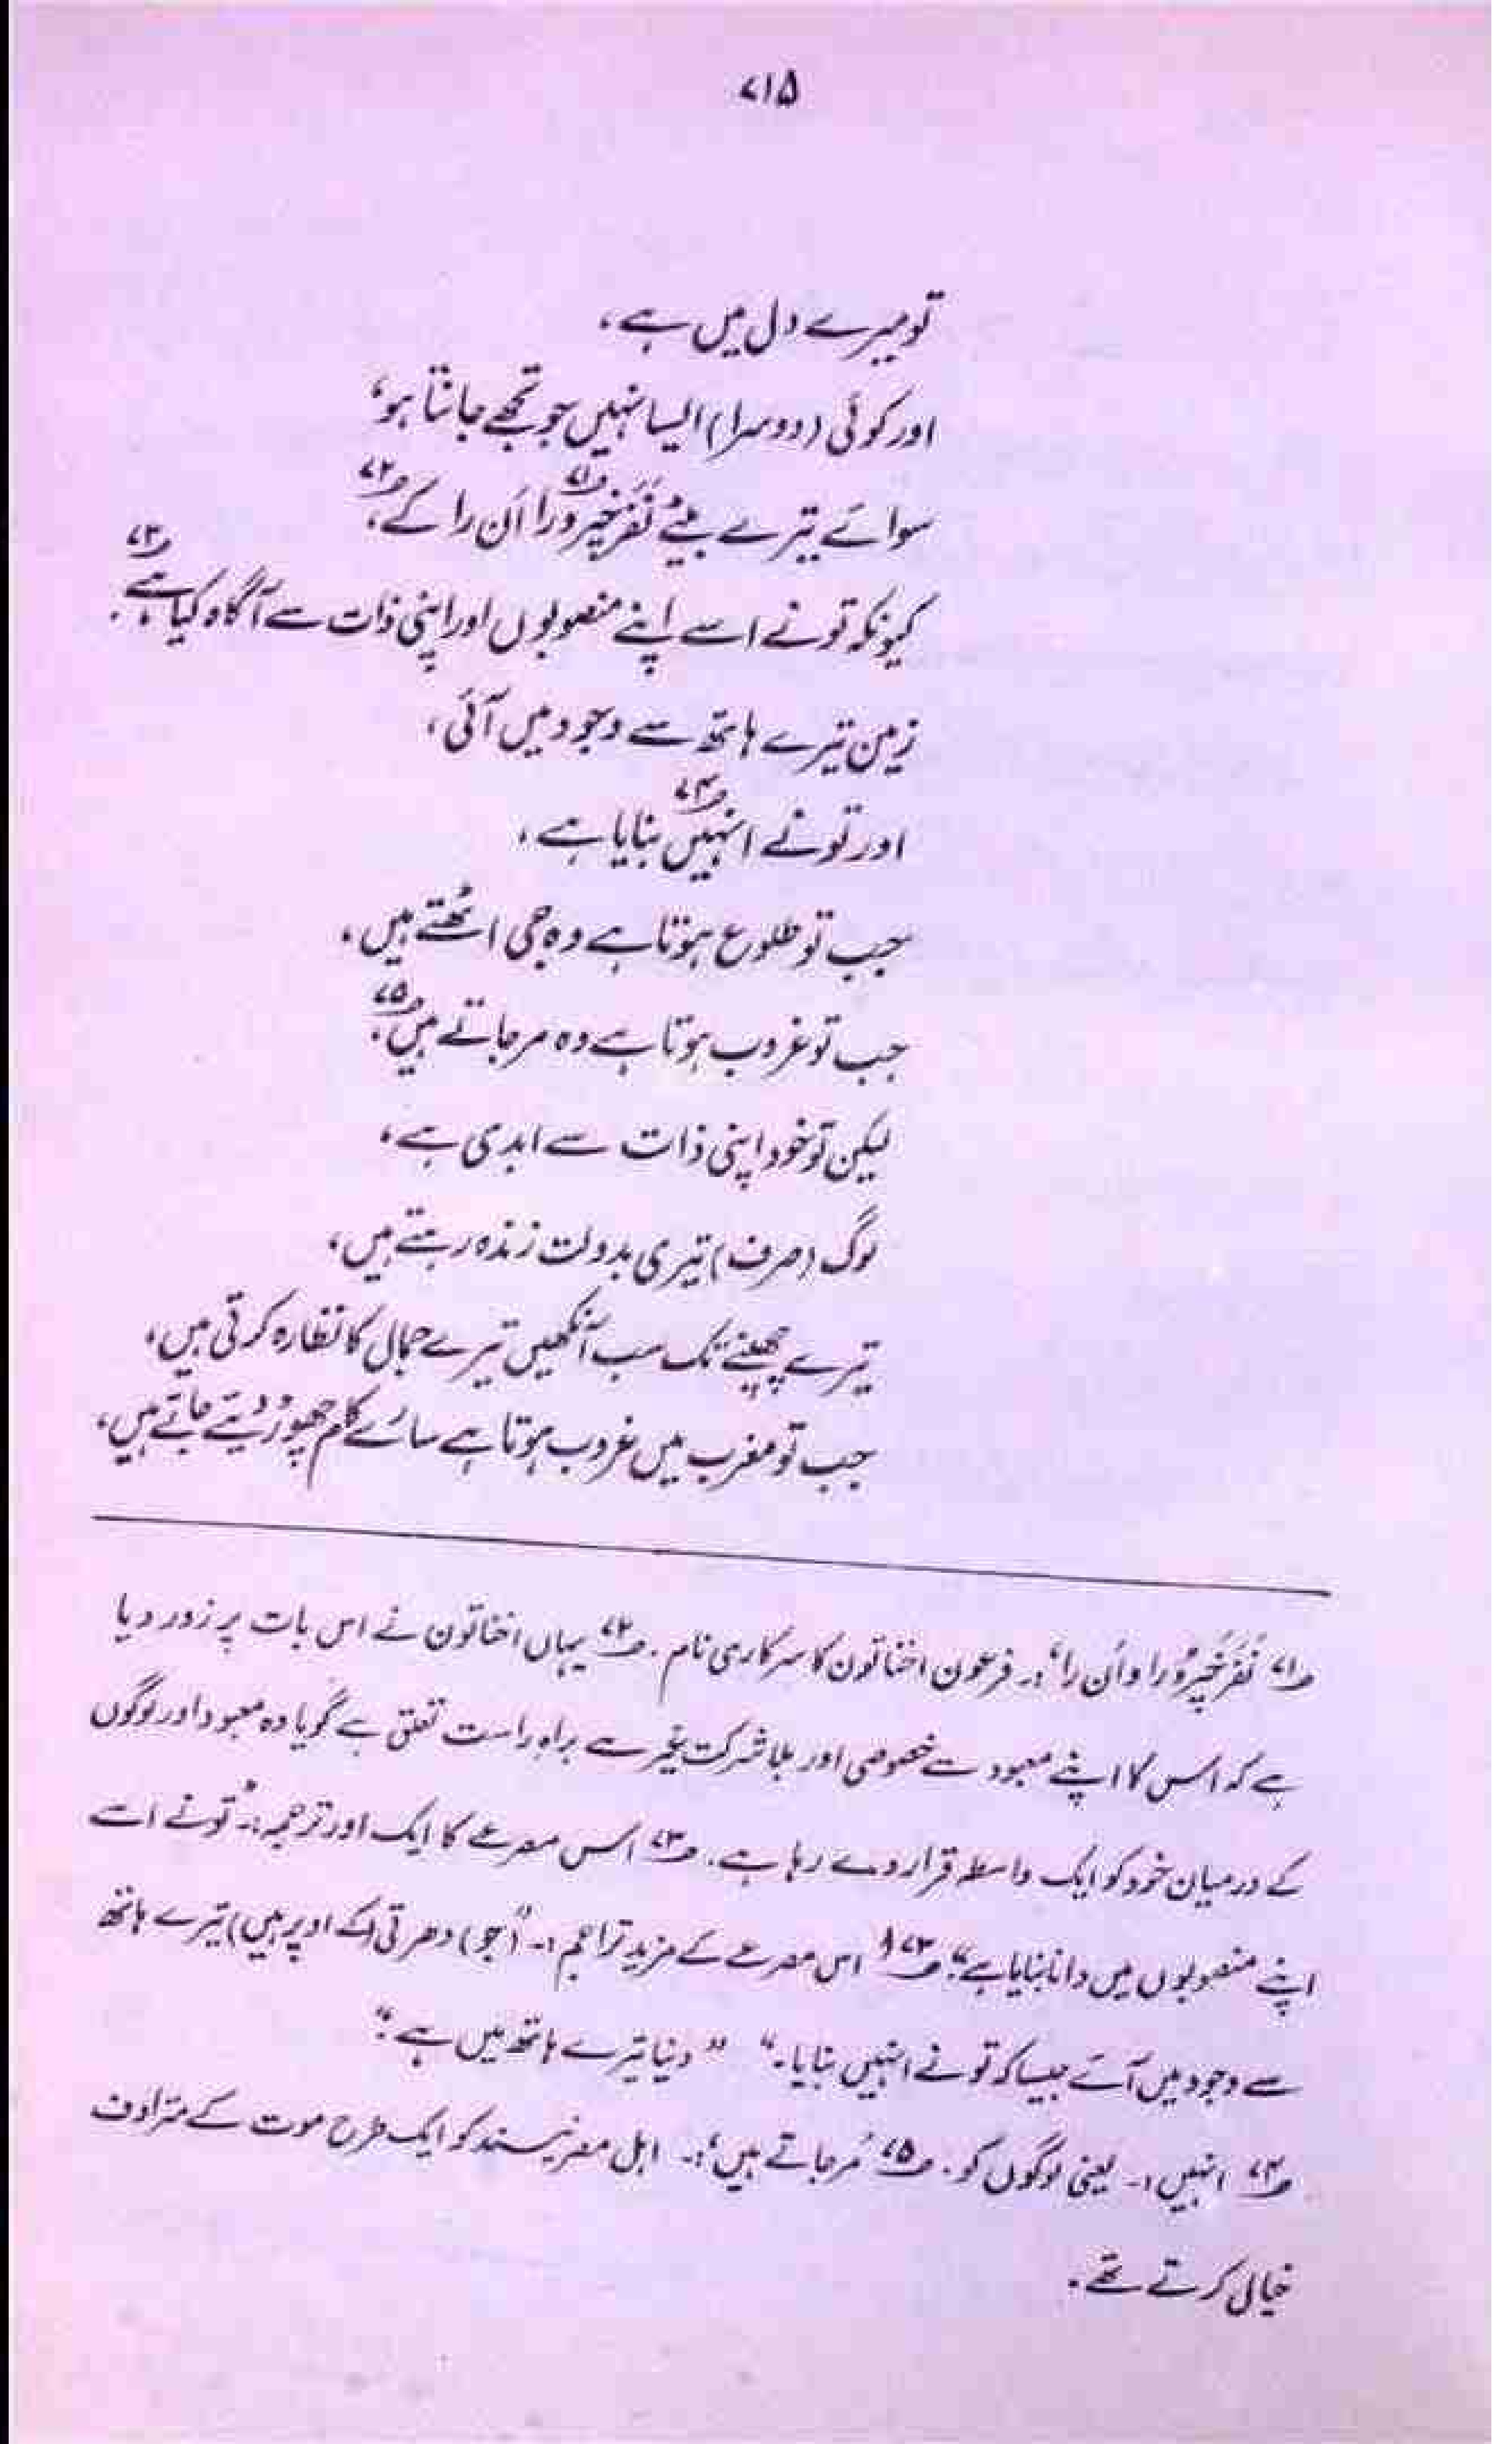 ۷۱۵
تو میرے دل میں ہے،
اور کوئی (دوسرا) ایسا نہیں جو تجھے جانتا ہو،
سوائے تیرے بیٹے نَفَرخَپِرورا ۷۱؎ اُن را کے، ۷۲؎
کیونکہ تو نے اسے اپنے منصوبوں اور اپنی ذات سے آگاہ کیا ہے۔ ۷۳؎
زمین تیرے ہاتھ سے وجود میں آئی،
اور تو نے انہیں ۷۴؎ بنایا ہے،
جب تو طلوع ہوتا ہے وہ جی اٹھتے ہیں،
جب تو غروب ہوتا ہے وہ مر جاتے ہیں، ۷۵؎
لیکن تو خود اپنی ذات سے ابدی ہے،
لوگ (صرف) تیری بدولت زندہ رہتے ہیں،
تیرے چھپنے تک سب آنکھیں تیرے جمال کا نظارہ کرتی ہیں،
جب تو مغرب میں غروب ہوتا ہے سارے کام چھوڑ دیئے جاتے ہیں،
۷۱؎ نَفَرخَپِرورا واُن را‘:۔ فرعون اخناتون کا سرکاری نام۔ ۷۲؎ یہاں اخناتون نے اس بات پر زور دیا
ہے کہ اس کا اپنے معبود سے خصوصی اور بلا شرکت غیرے براہ راست تعلق ہے گویا وہ معبود اور لوگوں
کے درمیان خود کو ایک واسطہ قرار دے رہا ہے۔ ۷۳؎ اس مصرعے کا ایک اور ترجمہ:۔ "تو نے اسے
اپنے منصوبوں میں دانا بنایا ہے"۔ ۷۳؎ا اس مصرعے کے مزید تراجم:۔ "(جو) دھرتی (کے اوپر ہیں) تیرے ہاتھ
سے وجود میں آئے جیسا کہ تو نے انہیں بنایا۔" "دنیا تیرے ہاتھ میں ہے"۔
۷۴؎ انہیں:۔ یعنی لوگوں کو۔ ۷۵؎ ’مر جاتے ہیں‘:۔ اہل مصر نیند کو ایک طرح موت کے مترادف
خیال کرتے تھے۔